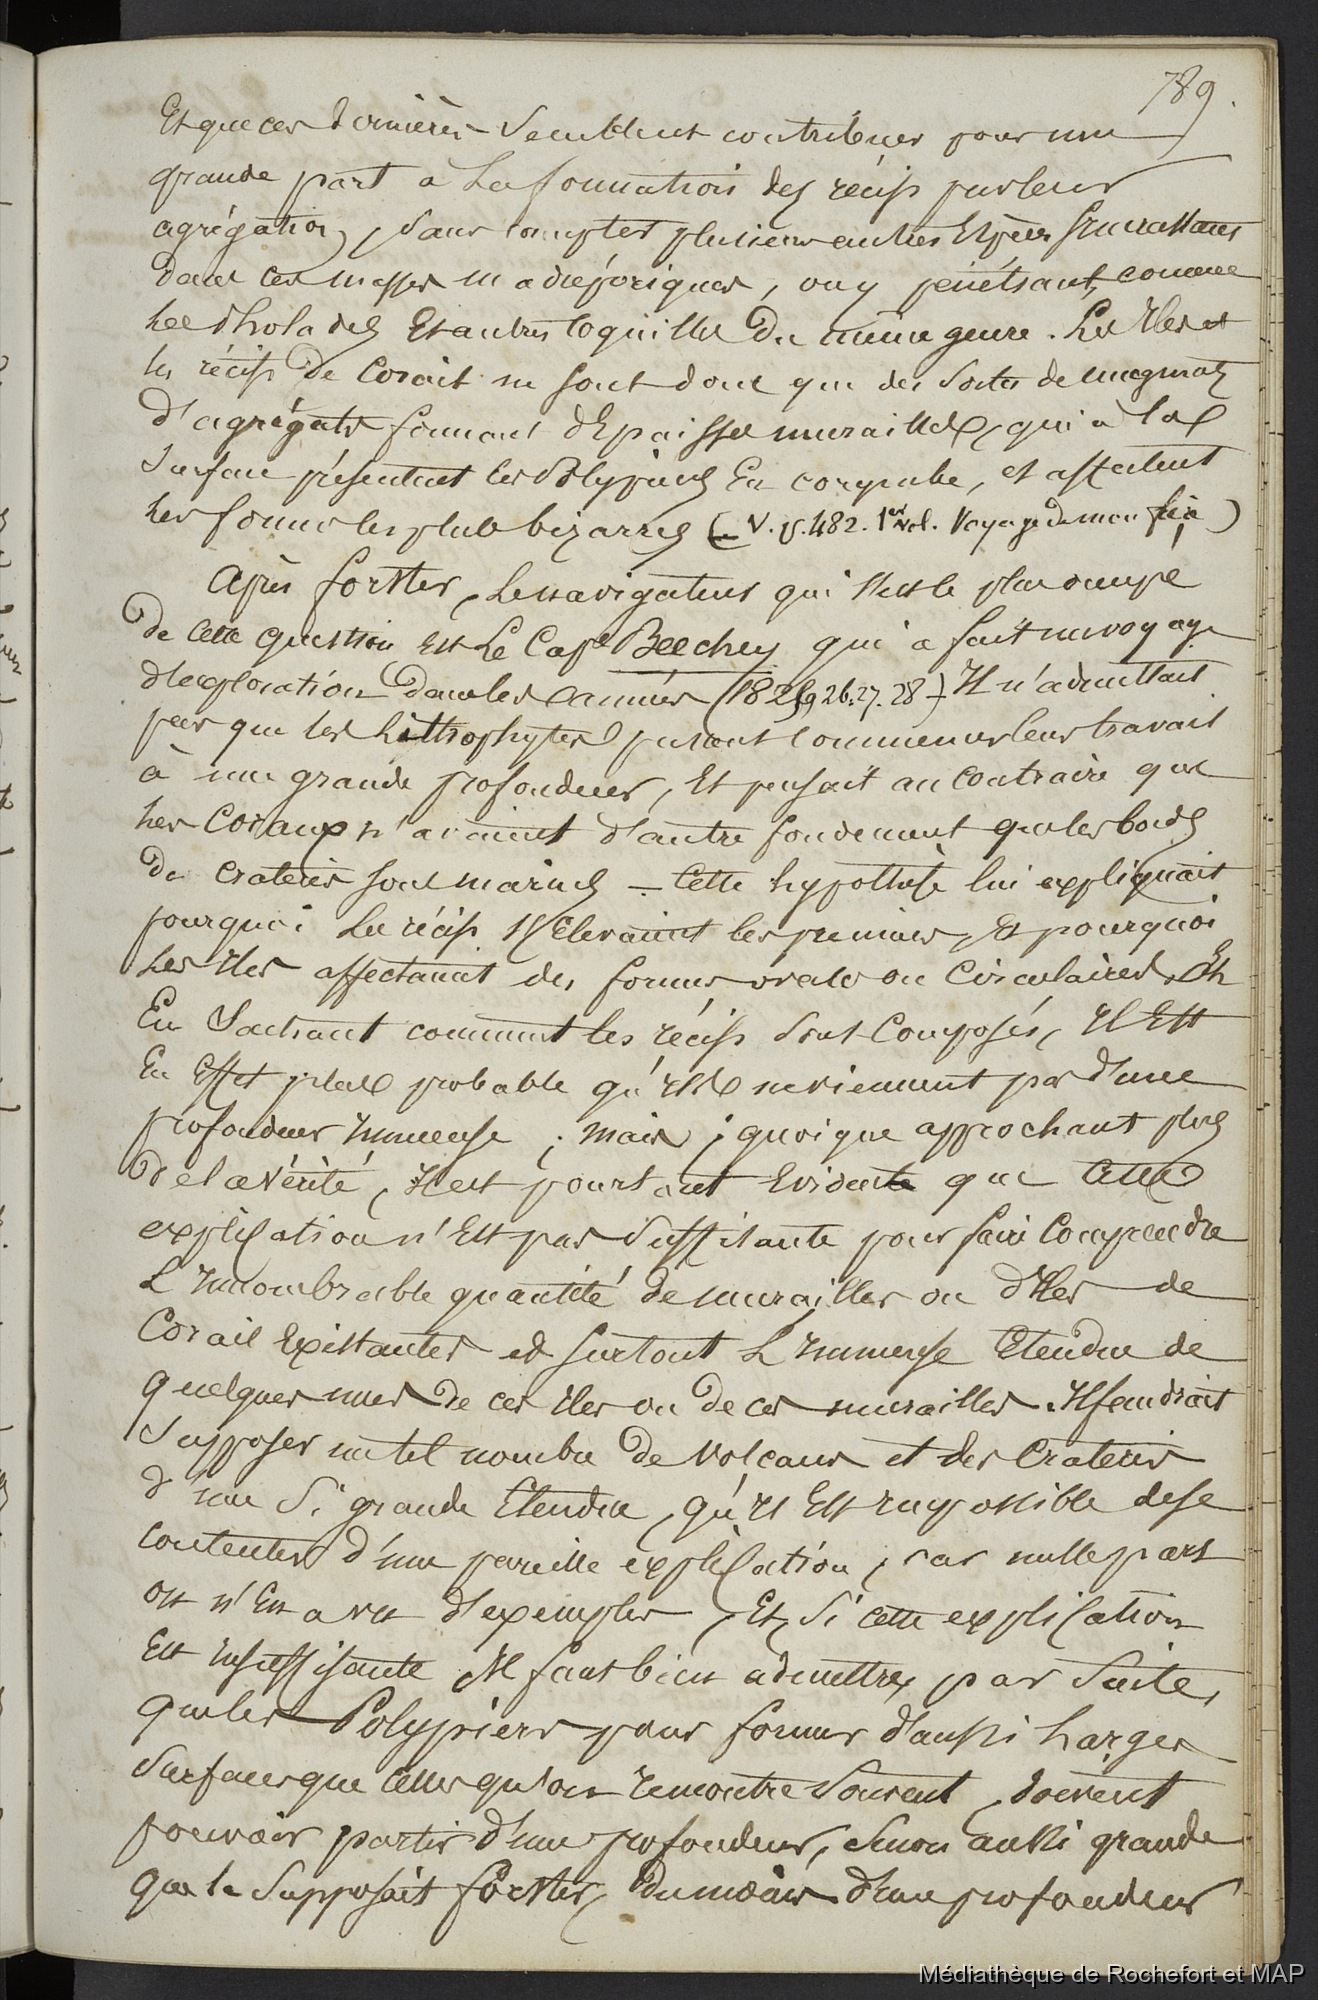 789.
Et que ces dernières semblent contribuer pour une
grande part à la formation des récifs par leur
agrégation, sans compter plusieurs autres Espèces s'incrustant
dans ces masses madréporiques, ou y pénétrant, comme
les Pholades Et autres coquilles du même genre. Les Iles et
les récifs de Corail ne sont donc que des sortes de magmats
d'agrégats formant d'Epaisses murailles, qui à la
surface présentent les Polypiers En corymbe, et affectent
les formes les plus bizarres (V. p. 482. 1er Vol. Voyage de mon )
Après Forster, le navigateur qui s'est le plus occupé
de cette question est Le Capne Beechey qui a fait un voyage
d'exploration dans les années (1825, 26, 27. 28) Il n'admettait
pas que les Litthophytes pussent commencer leur travail
à une grande profondeur, Et pensait au contraire que
les Coraux n'avaient d'autre fondement que les bords
de crateres sous marins — Cette hypothèse lui expliquait
pourquoi les récifs s'élevaient les premiers, et pourquoi
les Iles affectaient des formes ovales ou Circulaires. Eh
En sachant comment les récifs sont Composés, Il Est
En Effet plus probable qu'Elles ne viennent pas d'une
profondeur Immense ; mais ; quoique approchant plus
de la Vérité, Il est pourtant Evident que cette
explication n'Est pas suffisante pour faire Comprendre
L'Innombrable quantité de murailles ou d'Iles de
Corail Existantes et surtout L'Immense Etendue de
quelques unes de ces Iles ou de ces murailles. Il faudrait
supposer un tel nombre de Volcans et des Crateres
d'une si grande Etendue, qu'Il Est Impossible de se
contenter d'une pareille explication, car nulle part
on n'En a vu d'exemples, Et, si cette explication
Est Insuffisante Il faut bien admettre, par suite,
que les Polypiers pour former d'aussi larges
surfaces que celles qu'on rencontre souvent, doivent
pouvoir partir d'une profondeur, sinon aussi grande
que le supposait Forster, du moins d'une profondeur
Médiathèque de Rochefort et MAP